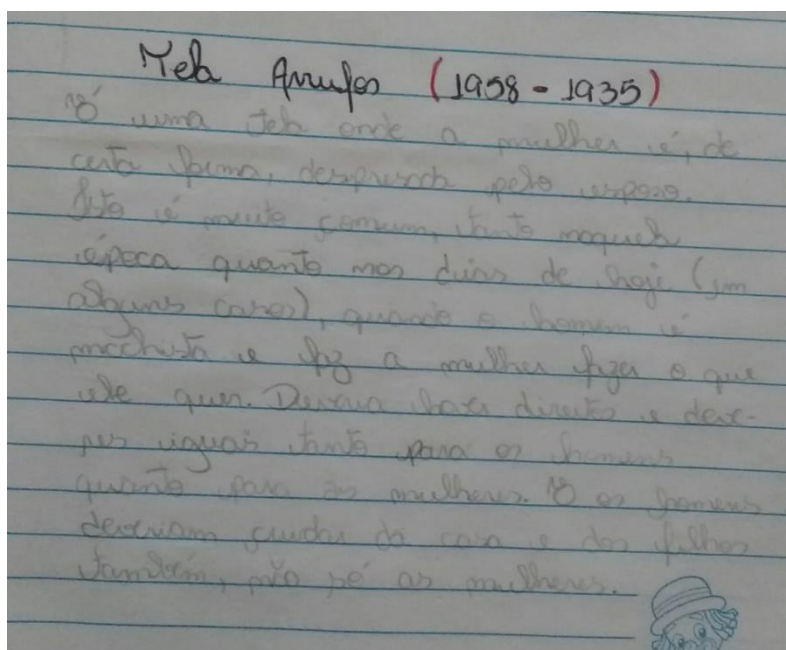 Tela Arrufos (1958 - 1935)
É uma tela onde a mulher é, de
certa forma, desprezada pelo esposo.
Isto é muito comum, tanto naquela
época quanto nos dias de hoje (em
alguns casos), quando o homem é
machista e faz a mulher fazer o que
ele quer. Deveria haver direitos e deve-
res iguais tanto para os homens
quanto para as mulheres. E os homens
deveriam cuidar da casa e dos filhos
também, não só as mulheres.